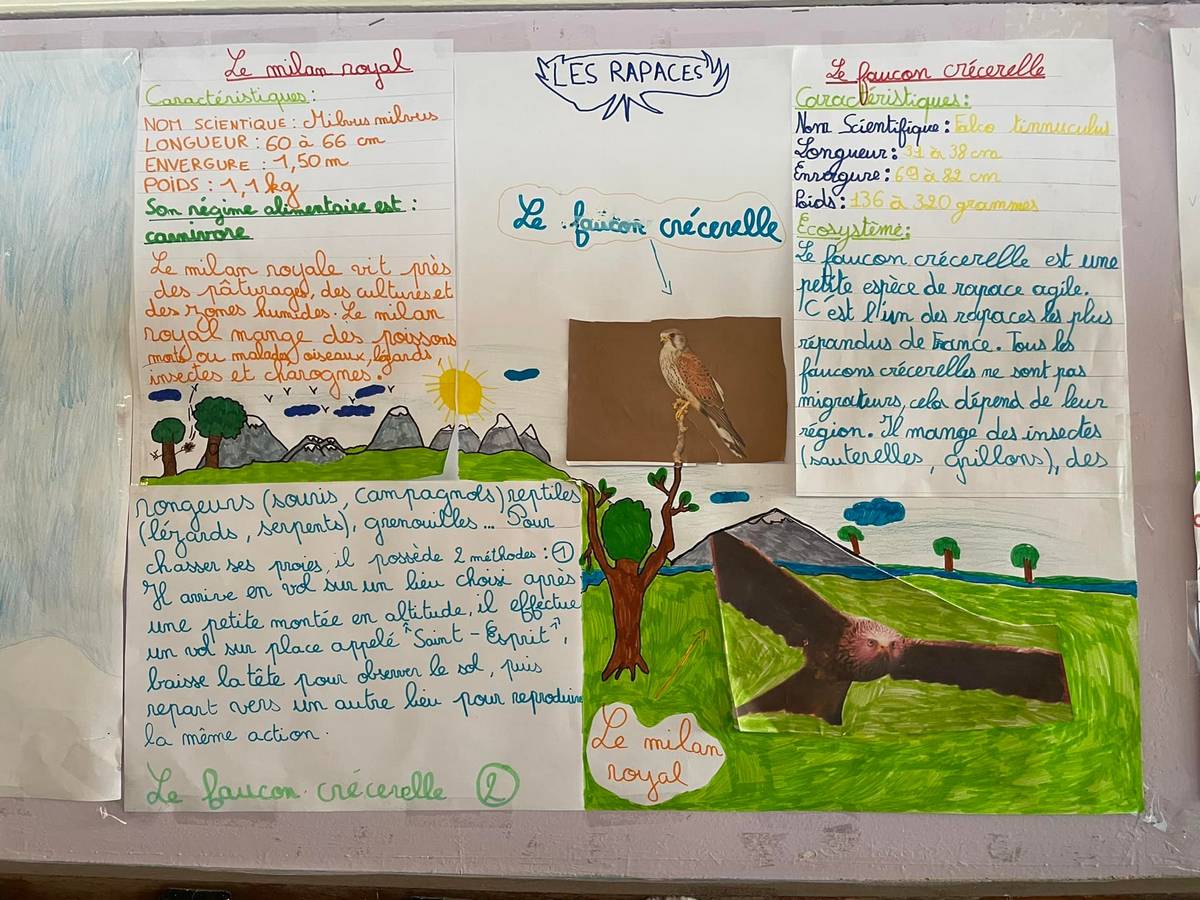 Le milan royal
Caractéristiques :
NOM SCIENTIQUE : Milvus milvus
LONGUEUR : 60 à 66 cm
ENVERGURE : 1,50 m
POIDS : 1,1 kg
Son régime alimentaire est :
carnivore
Le milan royale vit près
des pâturages, des cultures et
des zones humides. Le milan
royal mange des poissons
morts ou malades, oiseaux, lézards
insectes et charognes.
LES RAPACES
Le faucon crécerelle
Le faucon crécerelle
Caractéristiques :
Nom Scientifique : Falco tinnuculus
Longueur : 31 à 38 cm
Envergure : 69 à 82 cm
Poids : 136 à 320 grammes
Ecosystème :
Le faucon crécerelle est une
petite espèce de rapace agile.
C'est l'un des rapaces les plus
répandus de France. Tous les
faucons crécerelles ne sont pas
migrateurs, cela dépend de leur
région. Il mange des insectes
(sauterelles, grillons), des
rongeurs (souris, campagnols) reptiles
(lézards, serpents), grenouilles... Pour
chasser ses proies, il possède 2 méthodes : ①
Il arrive en vol sur un lieu choisi après
une petite montée en altitude, il effectue
un vol sur place appelé "Saint-Esprit",
baisse la tête pour observer le sol, puis
repart vers un autre lieu pour reproduire
la même action.
Le faucon crécerelle ②
Le milan
royal